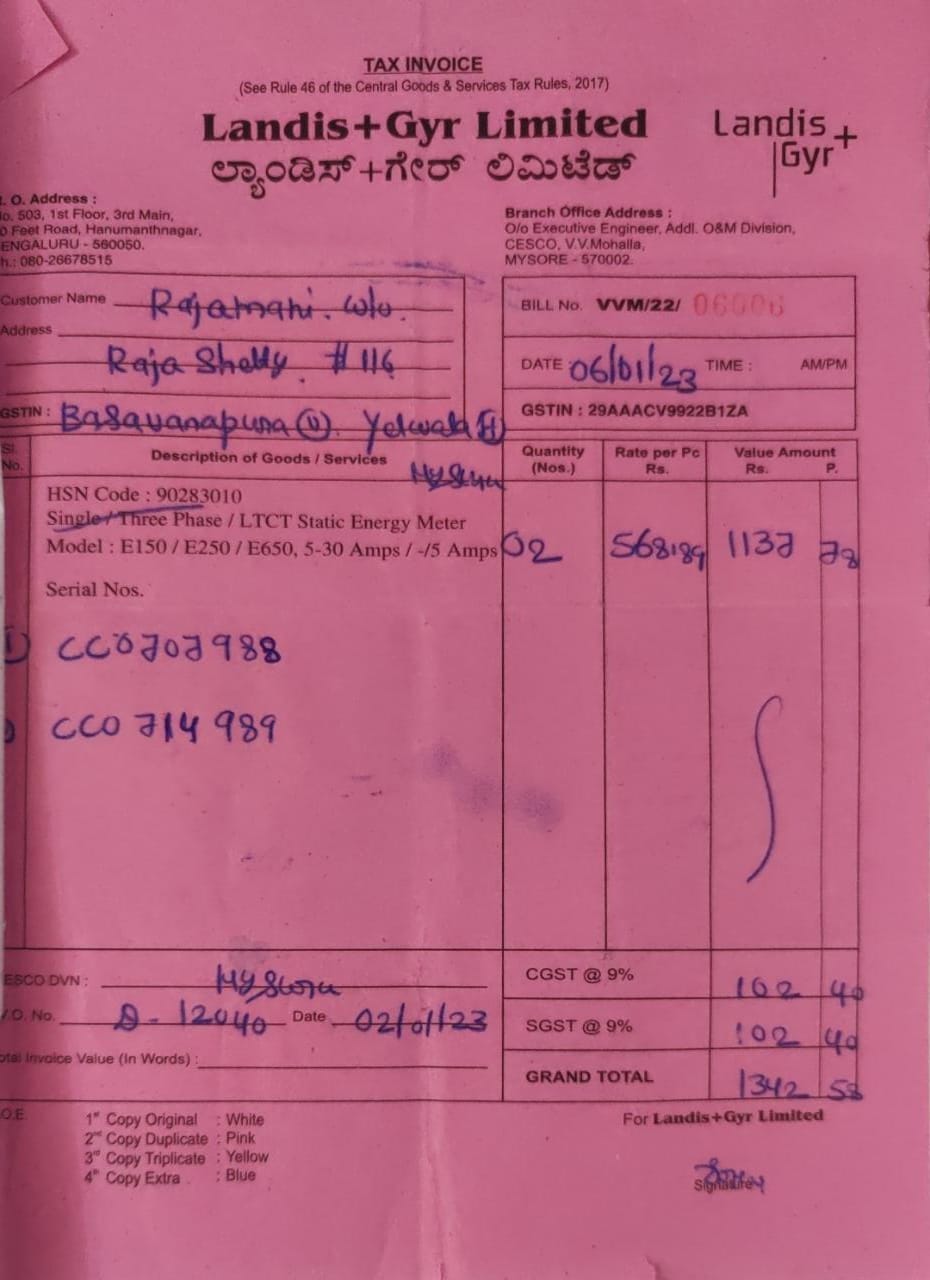 TAX INVOICE
(See Rule 46 of the Central Goods & Services Tax Rules, 2017)
Landis+Gyr Limited
ಲ್ಯಾಂಡಿಸ್+ಗೇರ್ ಲಿಮಿಟೆಡ್
Landis
Gyr+
. O. Address :
o. 503, 1st Floor, 3rd Main,
0 Feet Road, Hanumanthnagar,
ENGALURU - 560050.
h.: 080-26678515
Branch Office Address :
O/o Executive Engineer, Addl. O&M Division,
CESCO, V.V.Mohalla,
MYSORE - 570002.
Customer Name Rajamani. w/o.
Address
Raja Shetty. # 116
GSTIN : Basavanapura (V). Yelwala (H)
Mysuru
BILL No. VVM/22/ 06006
DATE : 06/01/23 TIME : AM/PM
GSTIN : 29AAACV9922B1ZA
Sl. No. Description of Goods / Services Quantity (Nos.) Rate per Pc Rs. Value Amount Rs. P.
HSN Code : 90283010
Single / Three Phase / LTCT Static Energy Meter
Model : E150 / E250 / E650, 5-30 Amps / -/5 Amps 02 568.89 1137 78
Serial Nos.
1) CC0707988
) CC0714989
ESCO DVN : Mysuru
.O. No. D-12040 Date 02/01/23
otal Invoice Value (In Words) :
CGST @ 9% 102 40
SGST @ 9% 102 40
GRAND TOTAL 1342 58
O.E
1st Copy Original : White
2nd Copy Duplicate : Pink
3rd Copy Triplicate : Yellow
4th Copy Extra : Blue
For Landis+Gyr Limited
Signature